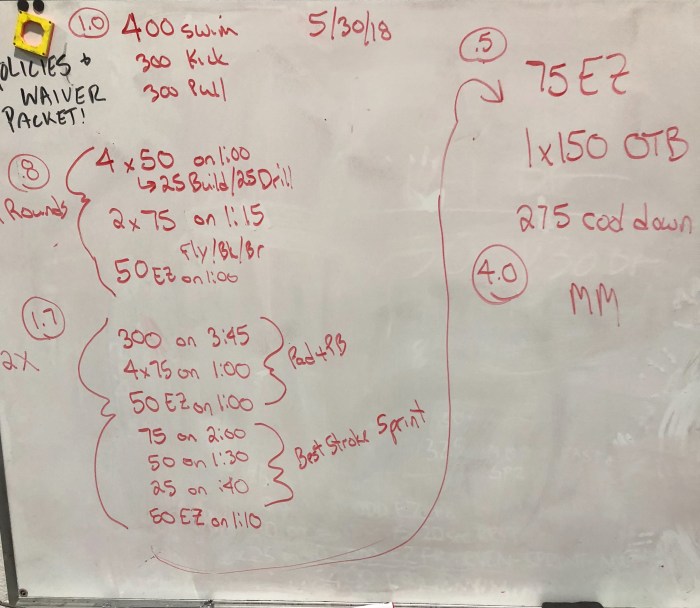 1.0 400 swim 5/30/18
300 Kick
300 Pull
OLICIES +
WAIVER
PACKET!
.8 4 x 50 on 1:00
↳ 25 Build/25 Drill
Rounds 2 x 75 on 1:15
Fly/Bk/Br
50 EZ on 1:00
1.7
2x
300 on 3:45
4x75 on 1:00 Pad+PB
50 EZ on 1:00
75 on 2:00
50 on 1:30 Best Stroke Sprint
25 on :40
50 EZ on 1:10
.5
75 EZ
1x150 OTB
275 cool down
4.0
MM